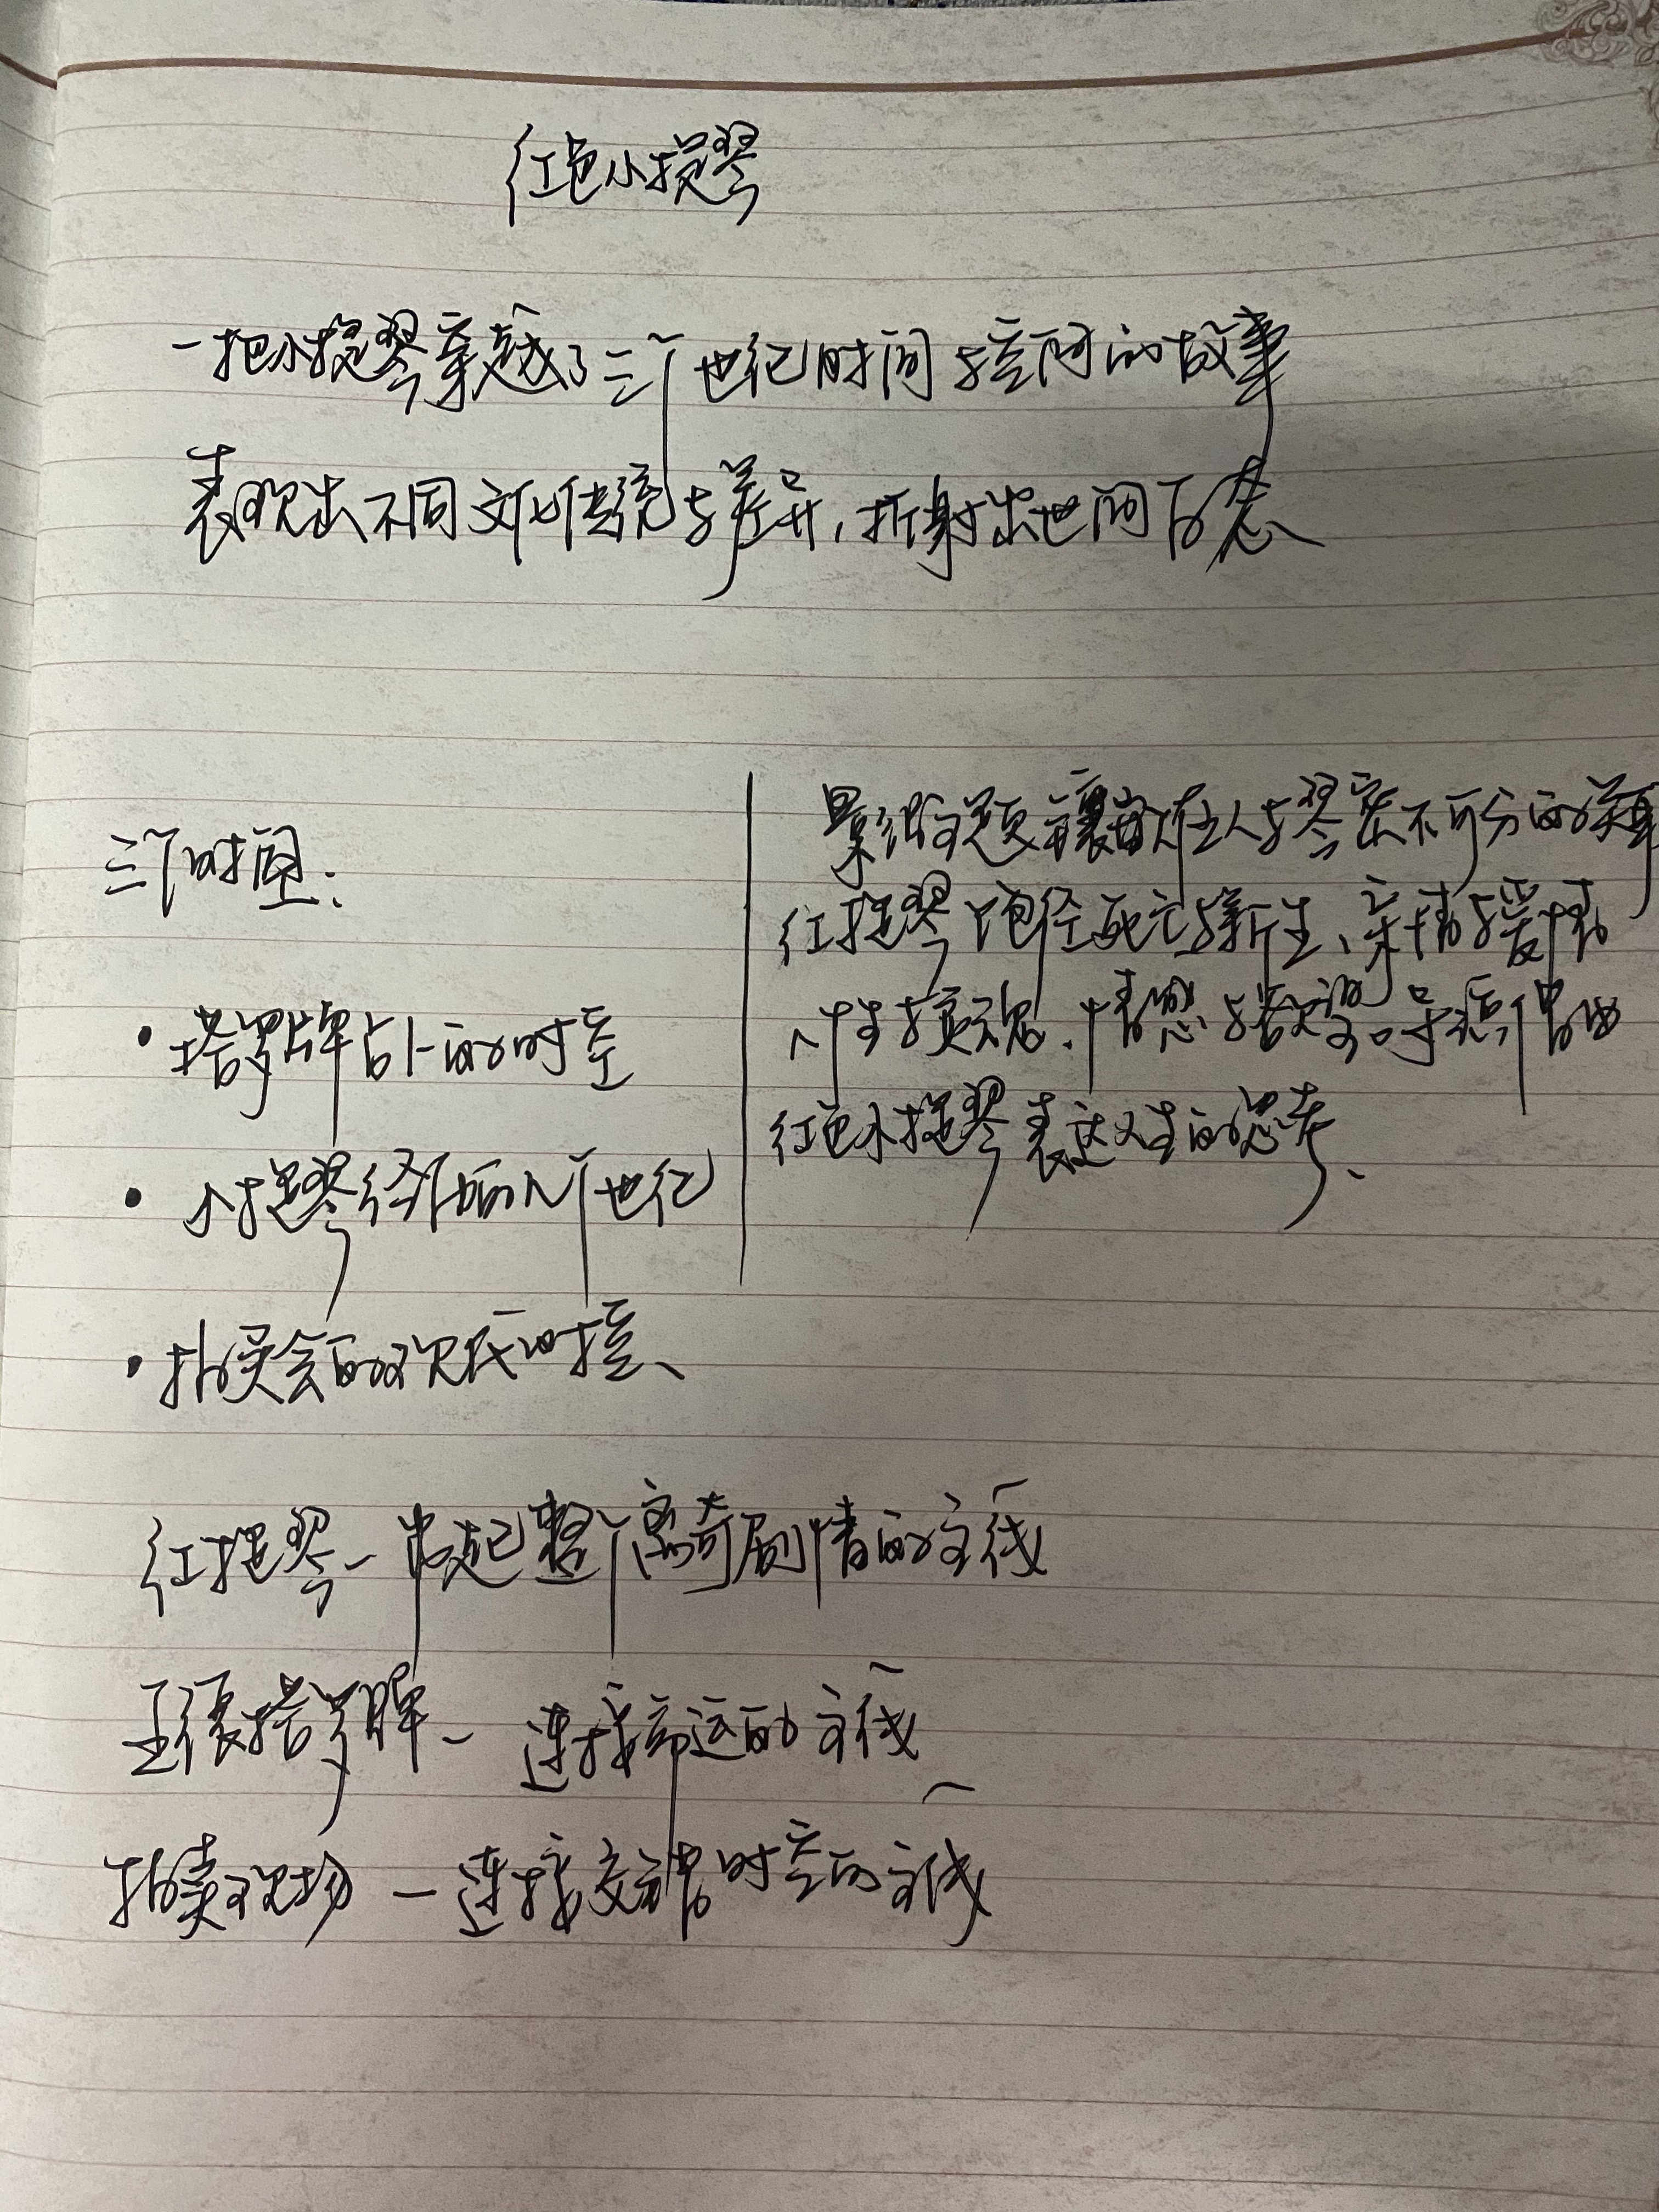 红色小提琴
一把小提琴穿越了三个世纪时间与空间的故事
表现出不同文化传统与差异，折射出世间百态
三个时空：
·塔罗牌占卜的时空
·小提琴经历的几个世纪
·拍卖会的现代时空、
红提琴－串起整个离奇剧情的主线
五张塔罗牌－连接命运的主线
拍卖现场－连接交错时空的主线
影片主题 在人与琴密不可分的关系
红提琴饱经死亡与新生、亲情与爱情
人性与灵魂、情感与欲望
红色小提琴表达人生的思考、